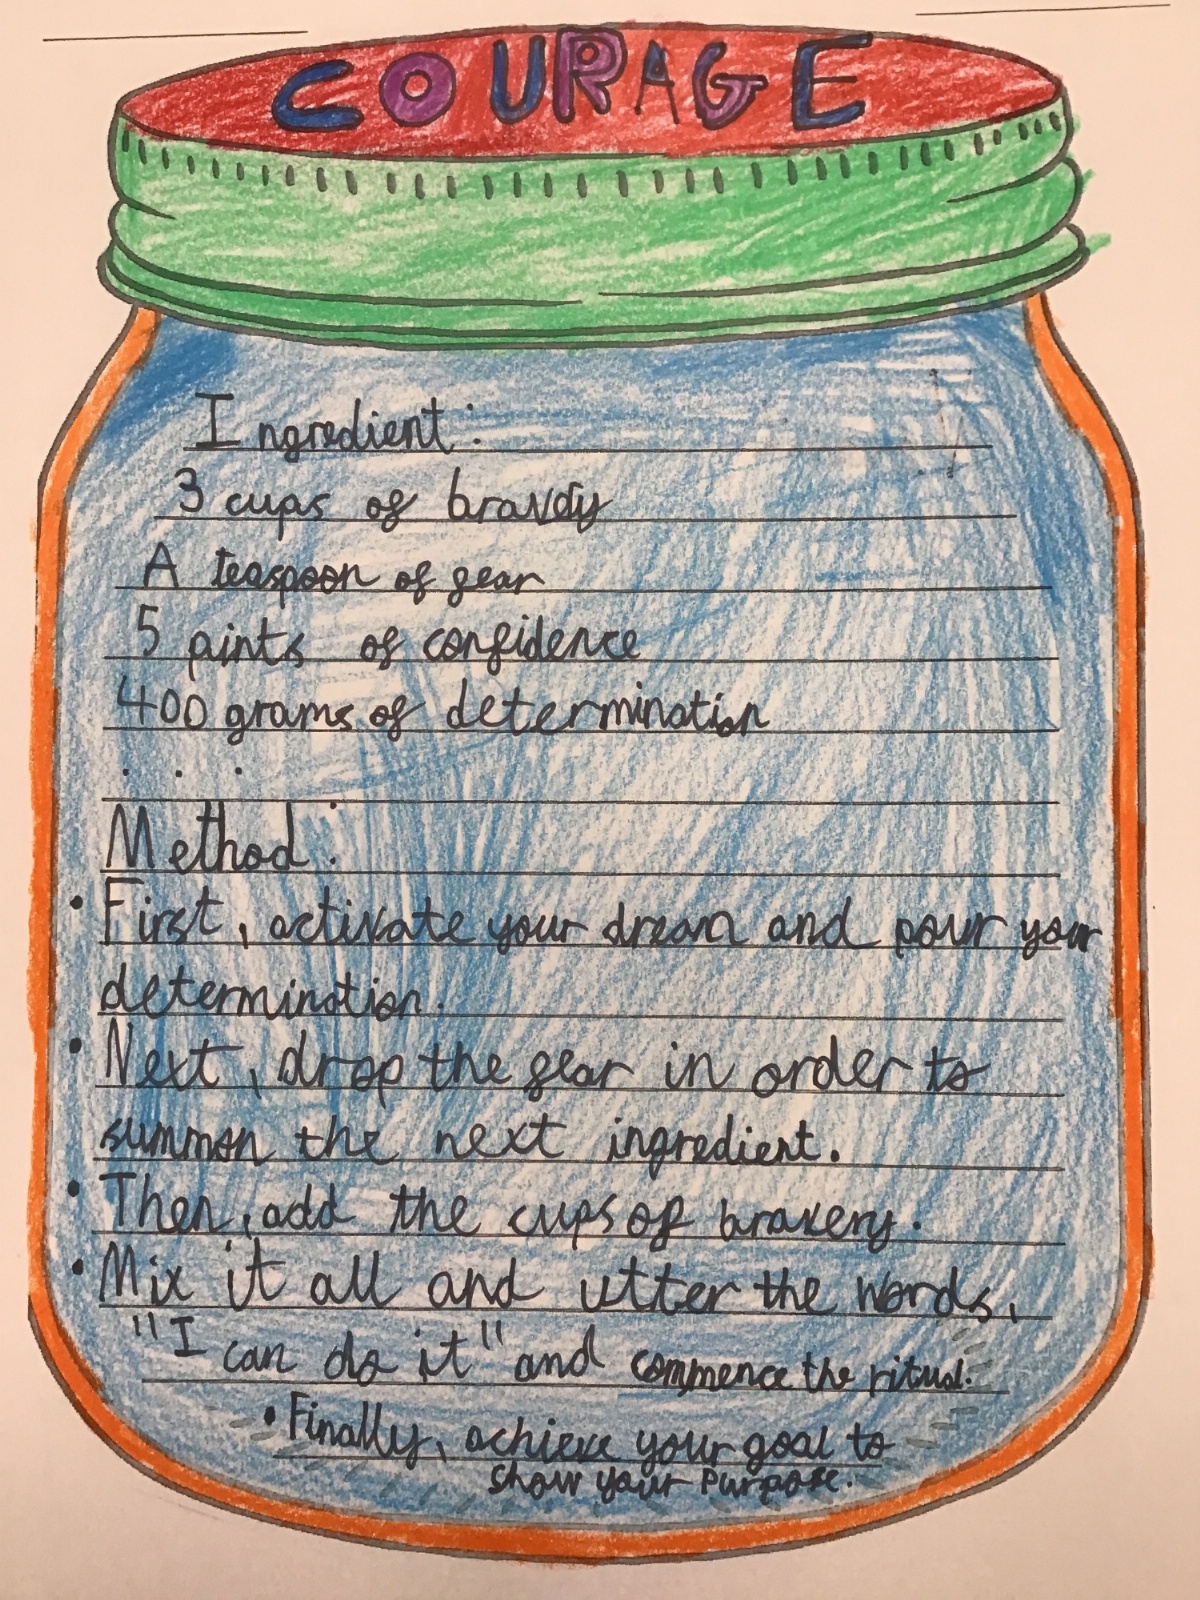 COURAGE
Ingredient:
3 cups of bravery
A teaspoon of fear
5 paints of confidence
400 grams of determination
. . .
Method:
• First, activate your dream and pour your
determination.
• Next, drop the fear in order to
summon the next ingredient.
• Then, add the cups of bravery.
• Mix it all and utter the words,
"I can do it" and commence the ritual.
• Finally, achieve your goal to
show your purpose.